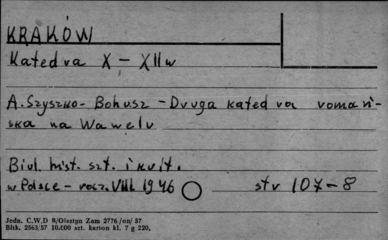 KRAKÓW
Katedra X – XII w
A. Szyszko-Bohusz – Druga katedra romań-
ska na Wawelu
Biul. hist. szt. i kult.
w Polsce – rocz. VIII 1946 str 107–8
Jedn. C.W.D 8/Olsztyn Zam 2776/on/57
Blhk. 2563/57 10.000 szt. karton kl. 7 g 220,